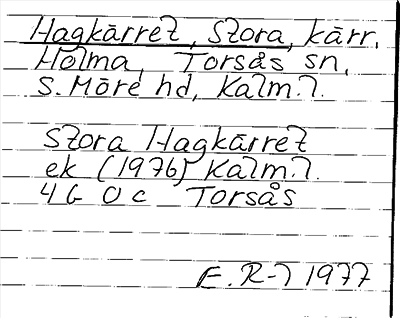 Hagkärret, Stora, kärr.
Holma, Torsås sn,
S. Möre hd, Kalm. l.
Stora Hagkärret
ek (1976) Kalm. l.
4 G 0 c Torsås
E. R-l 1977